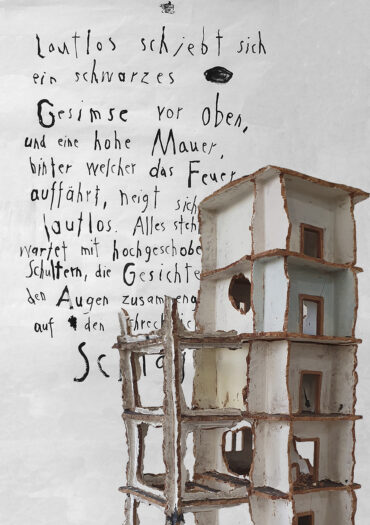 Lautlos schiebt sich
ein schwarzes
Gesimse vor oben,
und eine hohe Mauer,
hinter welcher das Feuer
auffährt, neigt sich
lautlos. Alles steh
wartet mit hochgeschobe
Schultern, die Gesichte
den Augen zusammeng
auf den